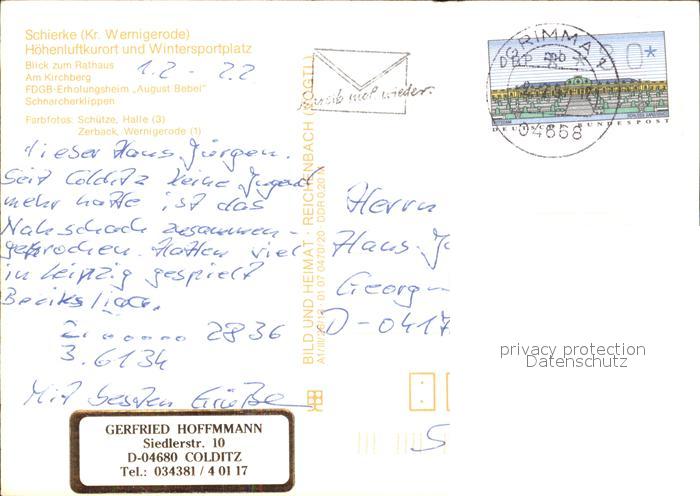 Schierke (Kr. Wernigerode)
Höhenluftkurort und Wintersportplatz
Blick zum Rathaus
Am Kirchberg
FDGB-Erholungsheim „August Bebel"
Schnarcherklippen
Farbfotos: Schütze, Halle (3)
Zerback, Wernigerode (1)
1.2 - 2.2
Lieber Hans-Jürgen.
Seit Colditz keine Jugend
mehr hatte ist das
Nahschach zusammen-
gebrochen. Hatten viel
in Leipzig gespielt
Bezirksliga.
2. ...... 2836
3. 6134
Mit besten Grüßen
GERFRIED HOFFMMANN
Siedlerstr. 10
D-04680 COLDITZ
Tel.: 034381 / 4 01 17
BILD UND HEIMAT · REICHENBACH (VOGTL)
01 07 0470/20 DDR 0,20 M
schreib mal wieder.
GRIMMA 1
04668
DEUTSCHE BUNDESPOST
Herrn
Hans-Jü
Georg-
D-0417
S
privacy protection
Datenschutz